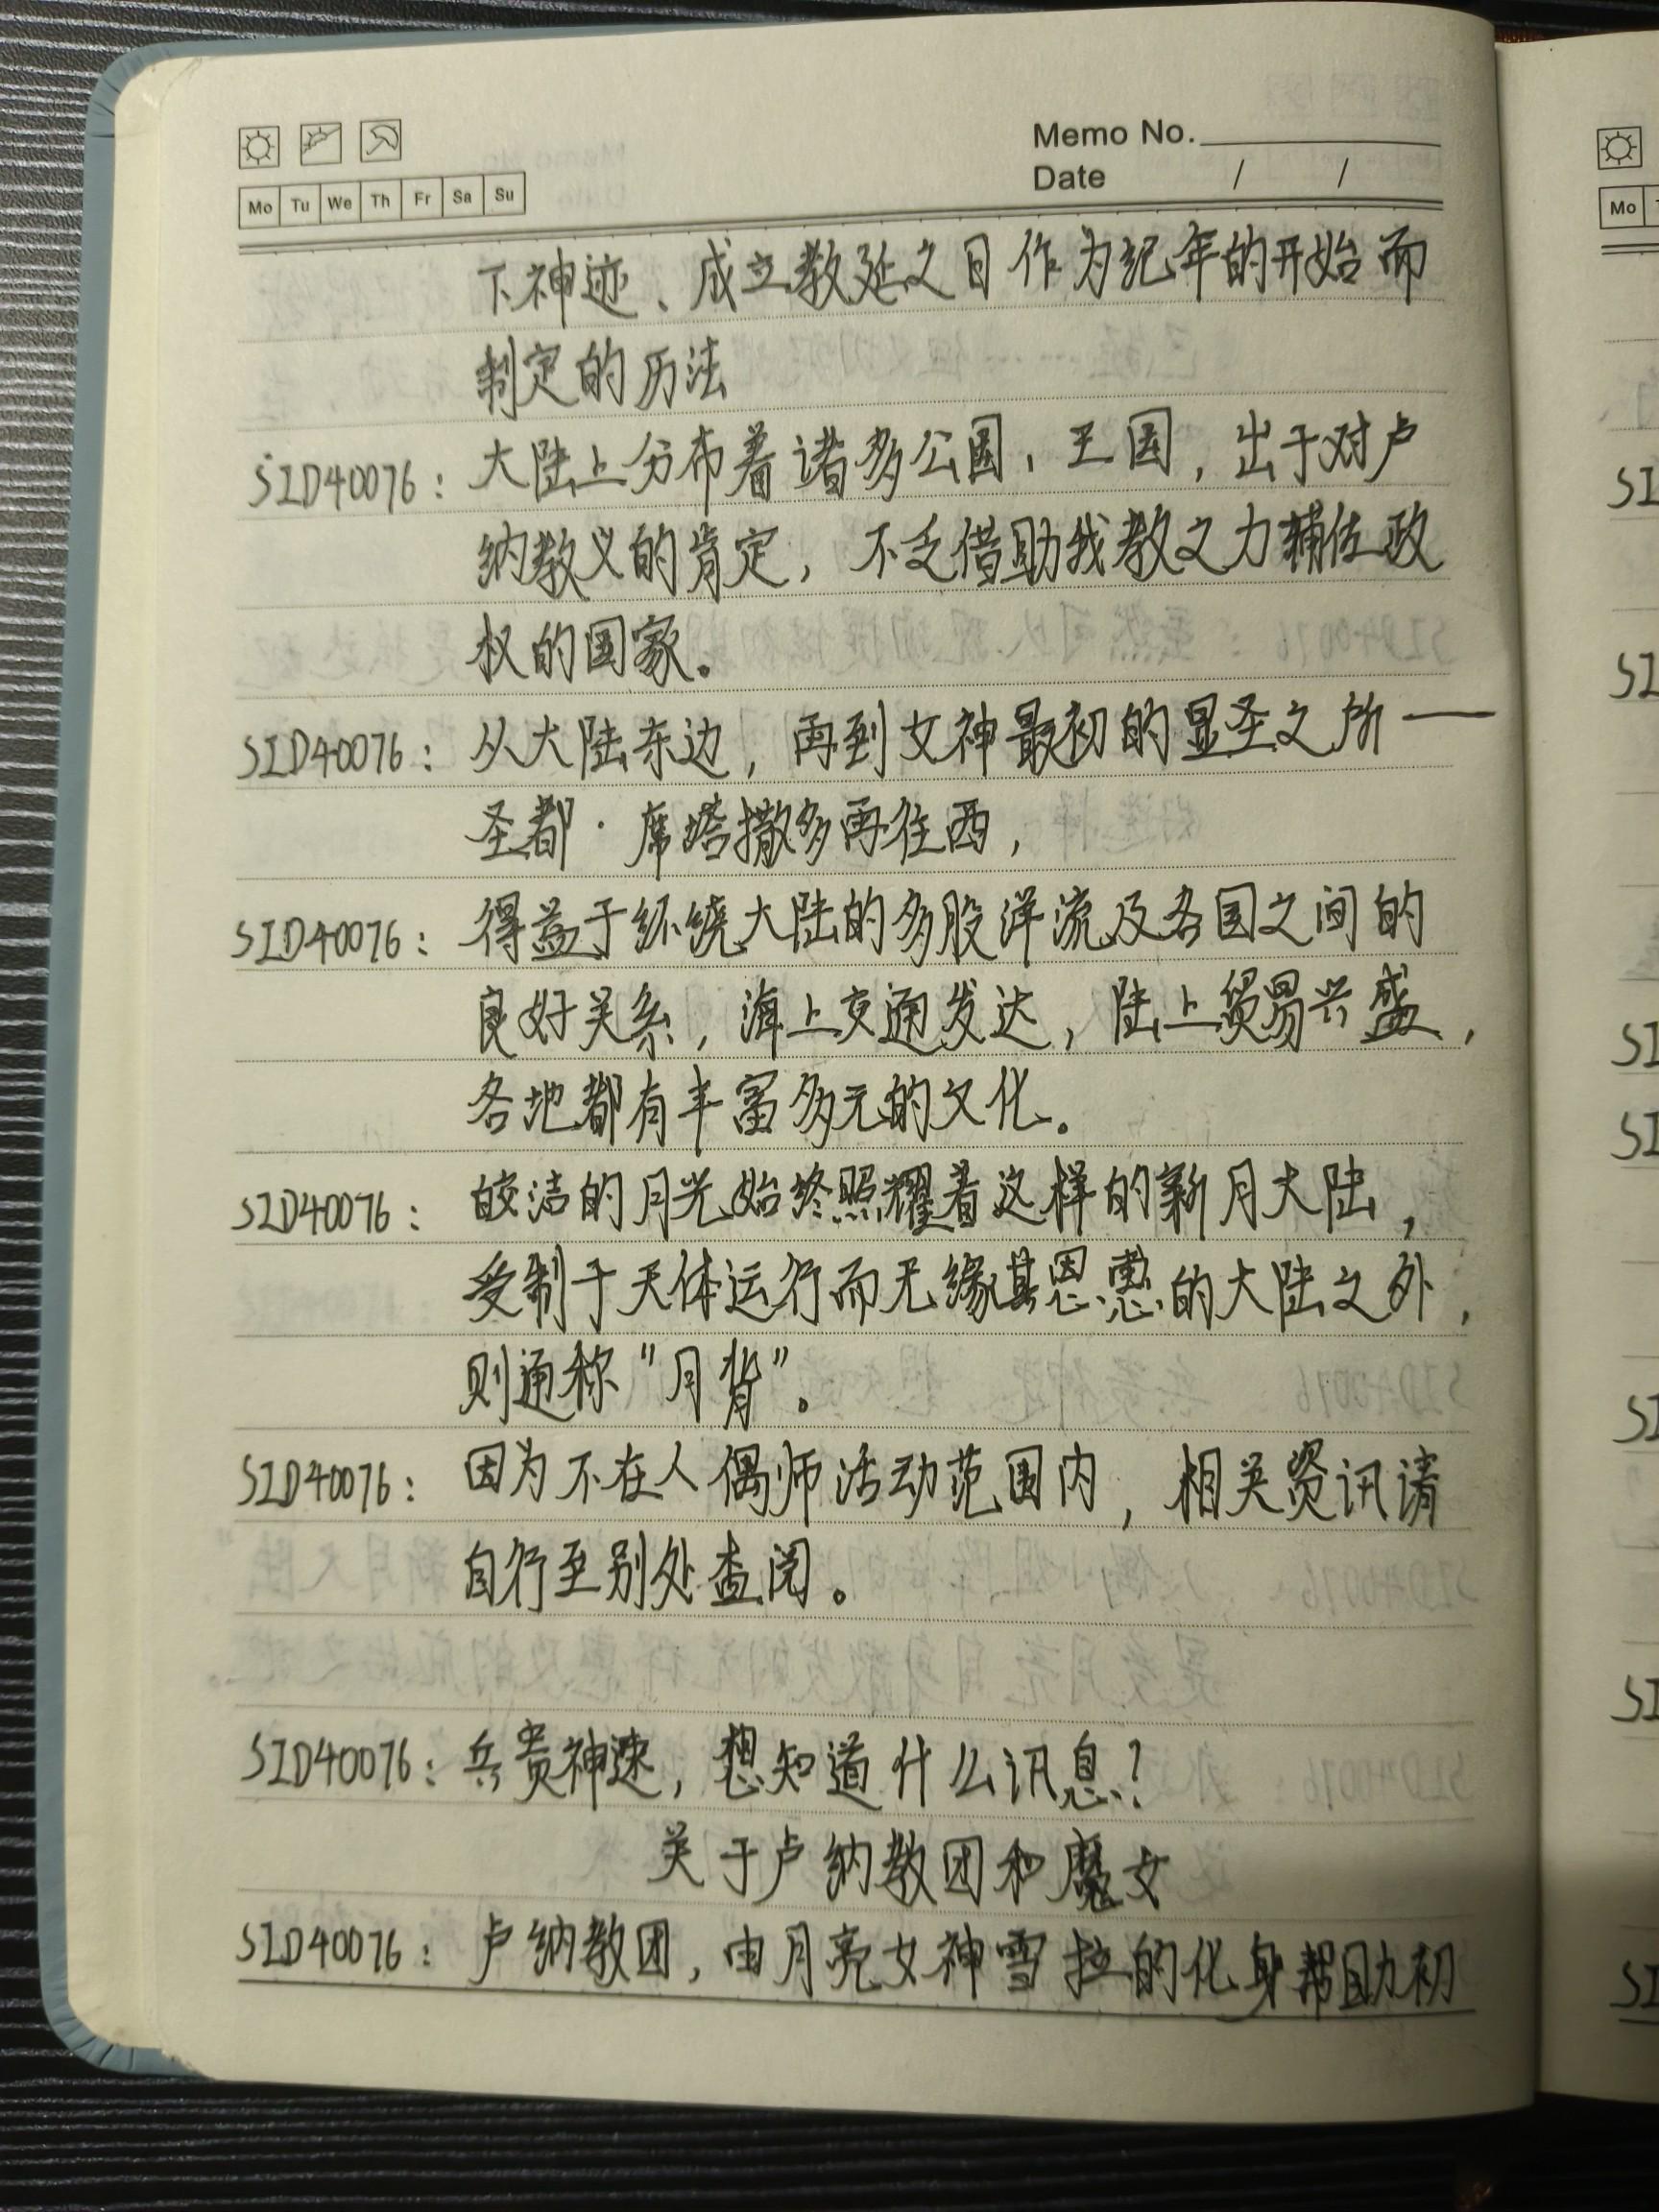 Memo No.
Date / /
Mo Tu We Th Fr Sa Su
下神迹、成立教廷之日作为纪年的开始而
制定的历法
SID40076：大陆上分布着诸多公国、王国，出于对卢
纳教义的肯定，不乏借助我教之力辅佐政
权的国家。
SID40076：从大陆东边，再到女神最初的显圣之所——
圣都·席塔撒多再往西，
SID40076：得益于环绕大陆的多股洋流及各国之间的
良好关系，海上交通发达，陆上贸易兴盛，
各地都有丰富多元的文化。
SID40076：皎洁的月光始终照耀着这样的新月大陆，
受制于天体运行而无缘其恩惠的大陆之外，
则通称“月背”。
SID40076：因为不在人偶师活动范围内，相关资讯请
自行至别处查阅。
SID40076：兵贵神速，想知道什么讯息？
关于卢纳教团和魔女
SID40076：卢纳教团，由月亮女神雪拉的化身帮助初
Mo
SI
SI
SI
SI
SI
SI
SI